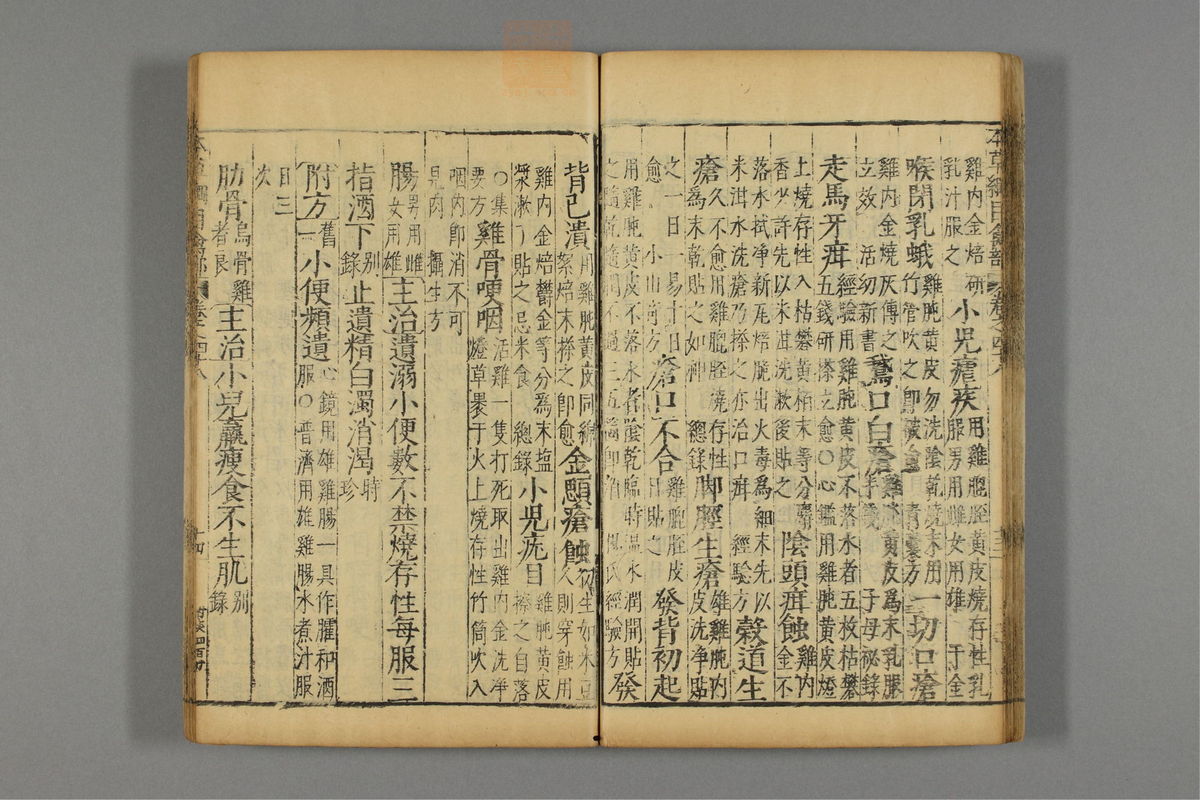 本草綱目禽部 卷之四十八
雞內金焙研
乳汁服之
小兒瘧疾
用雞膍胵黃皮燒存性乳
服男用雌女用雄 千金
喉閉乳蛾
雞肫黃皮勿洗陰乾燒末用
竹管吹之即破愈 青囊方
一切口瘡
雞內金燒灰傅之
立效 活幼新書
鵞口白瘡
黃皮為末乳服
子母秘錄
走馬牙疳
經驗用雞肫黃皮不落水者五枚枯礬
五錢研搽立愈○心鑑用雞肫黃皮燈
上燒存性入枯礬黃柏末等分麝
香少許先以米泔洗漱後貼之
陰頭疳蝕
雞內金不
落水拭淨新瓦焙脆出火毒為細末先以
米泔水洗瘡乃搽之亦治口疳 經驗方
穀道生
瘡
久不愈用雞膍胵燒存性
為末乾貼之如神 總錄
脚脛生瘡
雄雞肫內
皮洗淨貼
之一日一易十日
愈 小山奇方
瘡口不合
雞膍胵皮
日貼之
發背初起
用雞肫黃皮不落水者陰乾臨時溫水潤開貼
之隨乾隨潤不過三五箇即消 楊氏經驗方
發
背已潰
用雞肫黃皮同綿
絮焙末搽之即愈
金顋瘡蝕
初生如米豆
久則穿蝕用
雞內金焙鬱金等分為末鹽
漿漱了貼之忌米食 總錄
小兒疣目
雞肫黃皮
擦之自落
○集
要方
雞骨哽咽
活雞一隻打死取出雞內金洗淨
燈草裹于火上燒存性竹筒吹入
咽內即消不可
見肉 攝生方
腸
男用雌
女用雄
主治遺溺小便數不禁燒存性每服三
指酒下
別
錄
止遺精白濁消渴
時
珍
附方
舊
一
小便頻遺
心鏡用雄雞腸一具作臛和酒
服○普濟用雄雞腸水煮汁服
日三
次
肋骨
烏骨雞
者良
主治小兒羸瘦食不生肌
別
錄
本草綱目禽部 卷之四十八
十四